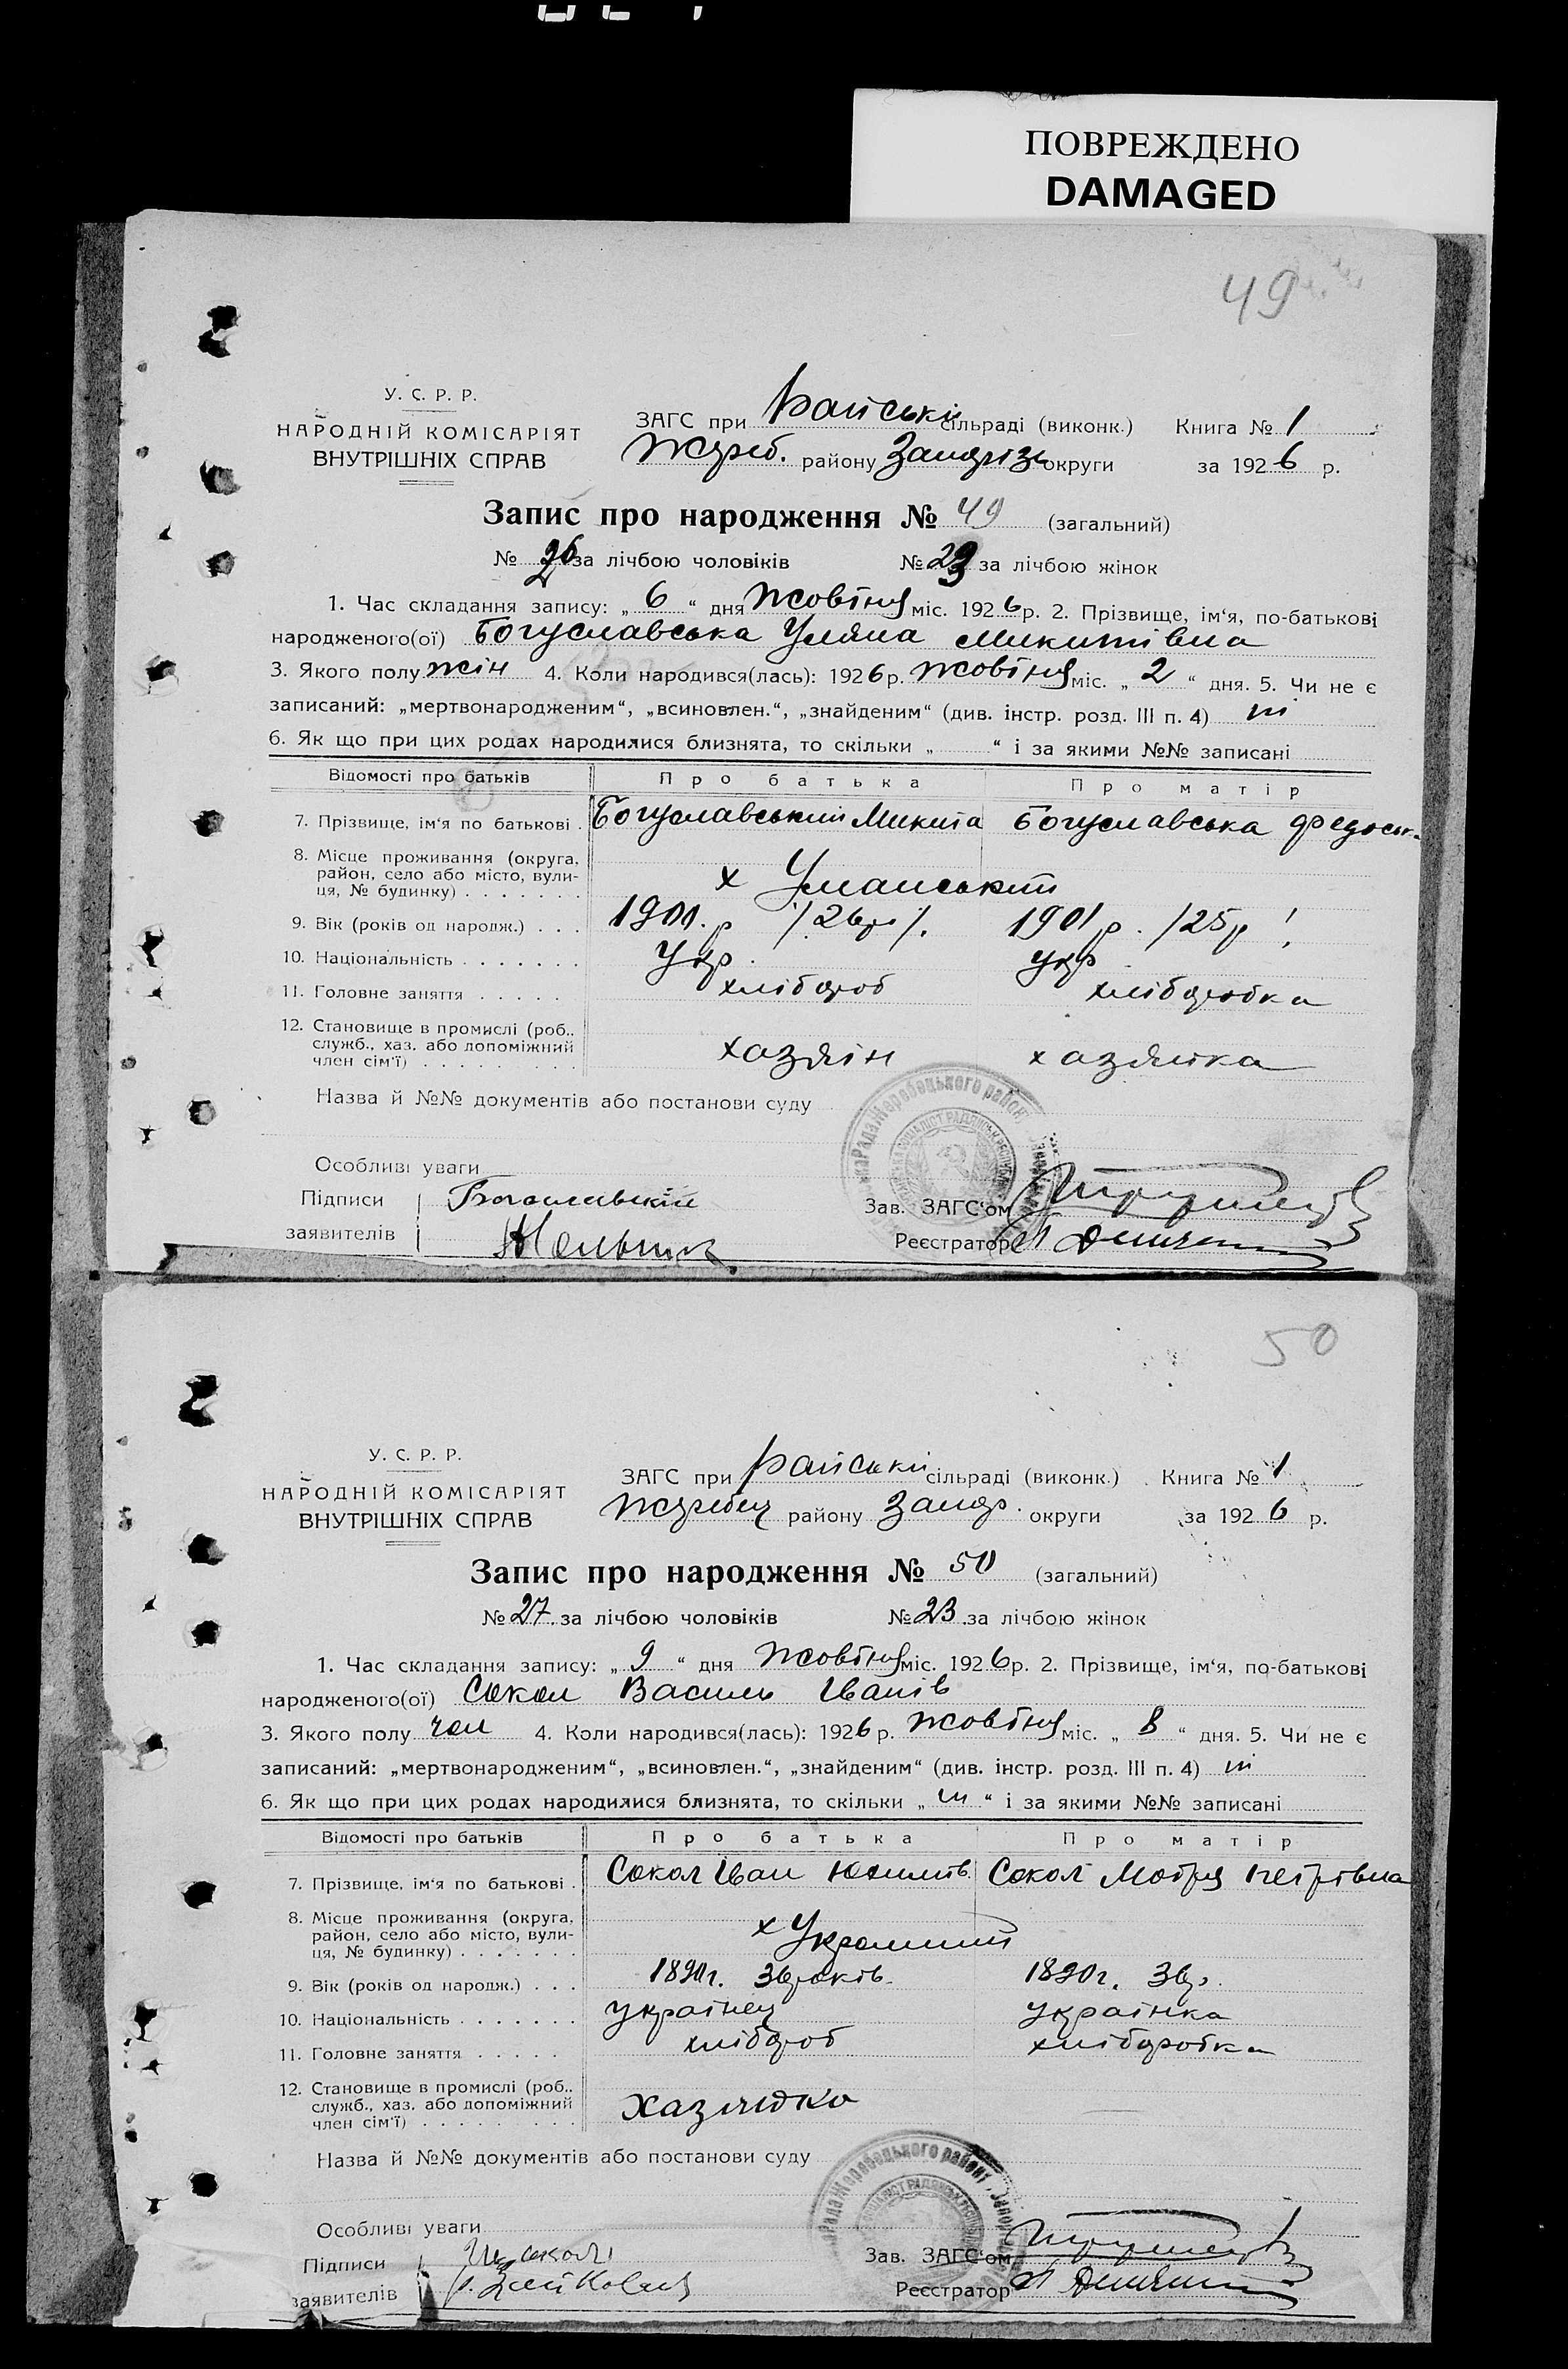 ПОВРЕЖДЕНО
DAMAGED
49
У. С. Р. Р.
НАРОДНІЙ КОМІСАРІЯТ
ВНУТРІШНІХ СПРАВ
ЗАГС при Райські сільраді (виконк.) Книга № 1
Жереб. району Запоріз округи за 1926 р.
Запис про народження № 49 (загальний)
№ 26 за лічбою чоловіків № 23 за лічбою жінок
1. Час складання запису: „ 6 “ дня Жовтня міс. 1926 р. 2. Прізвище, ім‘я, по-батькові
народженого(ої) Богуславська Уляна Микитівна
3. Якого полу жін 4. Коли народився(лась): 1926 р. Жовтня міс. „ 2 “ дня. 5. Чи не є
записаний: „мертвонародженим“, „всиновлен.“, „знайденим“ (див. інстр. розд. III п. 4) ні
6. Як що при цих родах народилися близнята, то скільки „ “ і за якими №№ записані
Відомості про батьків Про батька Про матір
7. Прізвище, ім‘я по батькові . Богуславський Микита Богуславська Федоськ
8. Місце проживання (округа,
район, село або місто, вули-
ця, № будинку) . . . . . . . х Уманський
9. Вік (років од народж.) . . . 1900. р /26р/. 1901 р. /25р !
10. Національність . . . . . . . Укр. Укр
11. Головне заняття . . . . . хлібороб хліборобка
12. Становище в промислі (роб.,
служб., хаз. або допоміжний
член сім‘ї) . . . . . . . . . хазяїн хазяйка
Назва й №№ документів або постанови суду
Особливі уваги
Підписи Богославскій
заявителів Мельник
Зав. ЗАГС‘ом
Реєстратор
50
У. С. Р. Р.
НАРОДНІЙ КОМІСАРІЯТ
ВНУТРІШНІХ СПРАВ
ЗАГС при Райські сільраді (виконк.) Книга № 1
Жеребец району Запор. округи за 1926 р.
Запис про народження № 50 (загальний)
№ 27 за лічбою чоловіків № 23 за лічбою жінок
1. Час складання запису: „ 9 “ дня Жовтня міс. 1926 р. 2. Прізвище, ім‘я, по-батькові
народженого(ої) Сокол Василь Іванів
3. Якого полу чол 4. Коли народився(лась): 1926 р. Жовтня міс. „ 8 “ дня. 5. Чи не є
записаний: „мертвонародженим“, „всиновлен.“, „знайденим“ (див. інстр. розд. III п. 4) ні
6. Як що при цих родах народилися близнята, то скільки „ ні “ і за якими №№ записані
Відомості про батьків Про батька Про матір
7. Прізвище, ім‘я по батькові . Сокол Іван Юхимів. Сокол Мотря Петрівна
8. Місце проживання (округа,
район, село або місто, вули-
ця, № будинку) . . . . . . . х
9. Вік (років од народж.) . . . 1890г. 36 років. 1890г. 36р.
10. Національність . . . . . . . українец українка
11. Головне заняття . . . . . хлібороб хліборобка
12. Становище в промислі (роб.,
служб., хаз. або допоміжний
член сім‘ї) . . . . . . . . .
Назва й №№ документів або постанови суду
Особливі уваги
Підписи
заявителів
Зав. ЗАГС‘ом
Реєстратор